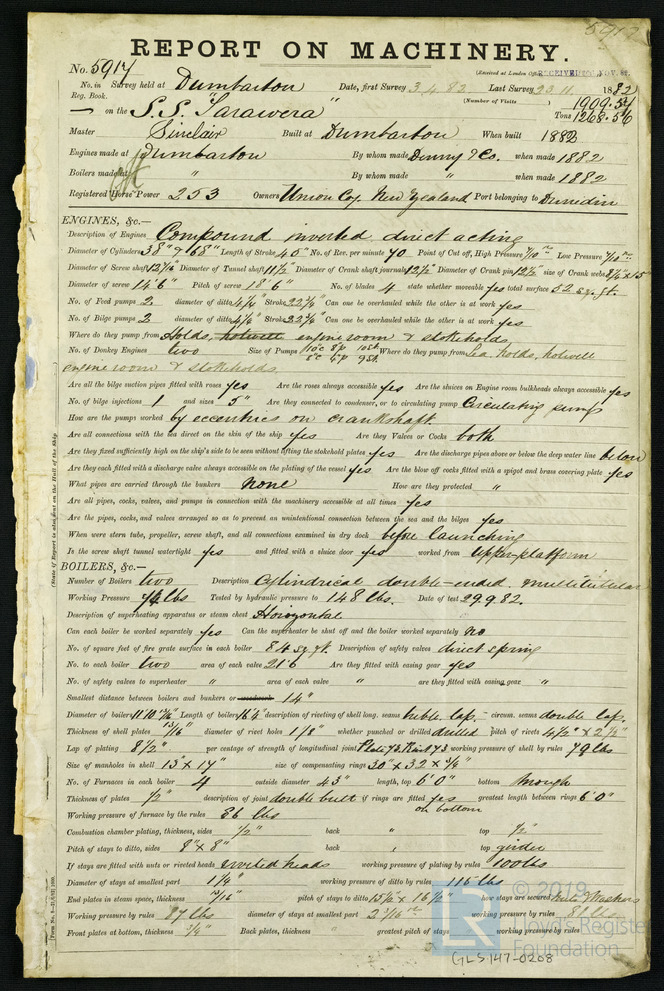 5917
REPORT ON MACHINERY.
No. 5917
(Received at London Office RECEIVED 10 NOV. 82
No. in Survey held at Dumbarton Date, first Survey 3.4.82 Last Survey 23.11. 1882
Reg. Book. (Number of Visits )
on the S.S. "Tarawera" Tons 1909.54 1268.56
Master Sinclair Built at Dumbarton When built 1882
Engines made at Dumbarton By whom made Denny & Co. when made 1882
Boilers made at " By whom made " when made 1882
Registered Horse Power 253 Owners Union Coy. New Zealand Port belonging to Dunedin
ENGINES, &c.—
Description of Engines Compound inverted direct acting
Diameter of Cylinders 38" & 68" Length of Stroke 45" No. of Rev. per minute 70 Point of Cut off, High Pressure 7/10 Low Pressure 7/10
Diameter of Screw shaft 12 7/16 Diameter of Tunnel shaft 11 1/2" Diameter of Crank shaft journals 12 1/2" Diameter of Crank pin 12 1/2" size of Crank webs 8 1/4" x 15
Diameter of screw 14'6" Pitch of screw 18'6" No. of blades 4 state whether moveable yes total surface 52 sq. ft.
No. of Feed pumps 2 diameter of ditto 4 1/16" Stroke 22 7/8" Can one be overhauled while the other is at work yes
No. of Bilge pumps 2 diameter of ditto 4 1/16" Stroke 22 7/8" Can one be overhauled while the other is at work yes
Where do they pump from Holds, hotwell engine room & stokeholds
No. of Donkey Engines two Size of Pumps Where do they pump from Sea, holds, hotwell
engine room & stokeholds
Are all the bilge suction pipes fitted with roses yes Are the roses always accessible yes Are the sluices on Engine room bulkheads always accessible yes
No. of bilge injections 1 and sizes 5" Are they connected to condenser, or to circulating pump Circulating pump
How are the pumps worked by eccentrics on crankshaft
Are all connections with the sea direct on the skin of the ship yes Are they Valves or Cocks both
Are they fixed sufficiently high on the ship's side to be seen without lifting the stokehold plates yes Are the discharge pipes above or below the deep water line below
Are they each fitted with a discharge valve always accessible on the plating of the vessel yes Are the blow off cocks fitted with a spigot and brass covering plate yes
What pipes are carried through the bunkers none How are they protected "
Are all pipes, cocks, valves, and pumps in connection with the machinery accessible at all times yes
Are the pipes, cocks, and valves arranged so as to prevent an unintentional connection between the sea and the bilges yes
When were stern tube, propeller, screw shaft, and all connections examined in dry dock before launching
Is the screw shaft tunnel watertight yes and fitted with a sluice door yes worked from Upper-platform
(State if Report is also sent on the Hull of the Ship.
BOILERS, &c.—
Number of Boilers two Description Cylindrical double-ended multitubular
Working Pressure lbs Tested by hydraulic pressure to 148 lbs. Date of test 29.9.82.
Description of superheating apparatus or steam chest Horizontal
Can each boiler be worked separately yes Can the superheater be shut off and the boiler worked separately no
No. of square feet of fire grate surface in each boiler 84 sq. ft. Description of safety valves direct spring
No. to each boiler two area of each valve 21.6 Are they fitted with easing gear yes
No. of safety valves to superheater " area of each valve " are they fitted with easing gear "
Smallest distance between boilers and bunkers or woodwork 14"
Diameter of boilers 11'10 13/16" Length of boilers 16'4" description of riveting of shell long. seams treble lap. circum. seams double lap.
Thickness of shell plates 13/16" diameter of rivet holes 1 1/8" whether punched or drilled drilled pitch of rivets 4 1/2" x 2 7/8"
Lap of plating 8 1/2" per centage of strength of longitudinal joint Plate 73. Rivet 73 working pressure of shell by rules 79 lbs
Size of manholes in shell 13" x 17" size of compensating rings 30" x 32 x 3/4"
No. of Furnaces in each boiler 4 outside diameter 43" length, top 6'0" bottom through
Thickness of plates 1/2" description of joint double butt if rings are fitted yes greatest length between rings 6'0"
on bottom
Working pressure of furnace by the rules 86 lbs
Combustion chamber plating, thickness, sides 1/2" back " top 1/2"
Pitch of stays to ditto, sides 8" x 8" back " top girder
If stays are fitted with nuts or riveted heads riveted heads working pressure of plating by rules 100 lbs
Diameter of stays at smallest part 1 7/8" working pressure of ditto by rules 115 lbs
End plates in steam space, thickness 13/16" pitch of stays to ditto 15 1/2" x 16 1/2" how stays are secured Nuts & Washers
Working pressure by rules 87 lbs diameter of stays at smallest part 2 3/16" working pressure by rules 81 lbs
Front plates at bottom, thickness 3/4" Back plates, thickness " greatest pitch of stays working pressure by rules
© 2019
Lloyd's Register
Foundation
LR
GLS147-0208